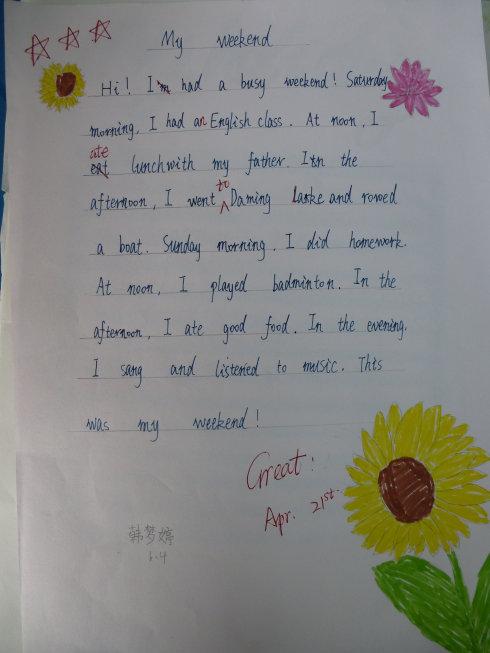 My weekend
Hi! I'm had a busy weekend! Saturday
morning, I had an English class. At noon, I
ate
eat lunch with my father. In the
to
afternoon, I went Daming lake and rowed
a boat. Sunday morning, I did homework.
At noon, I played badminton. In the
afternoon, I ate good food. In the evening,
I sang and listened to music. This
was my weekend!
Great!
Apr. 21st.
韩梦婷
6.4